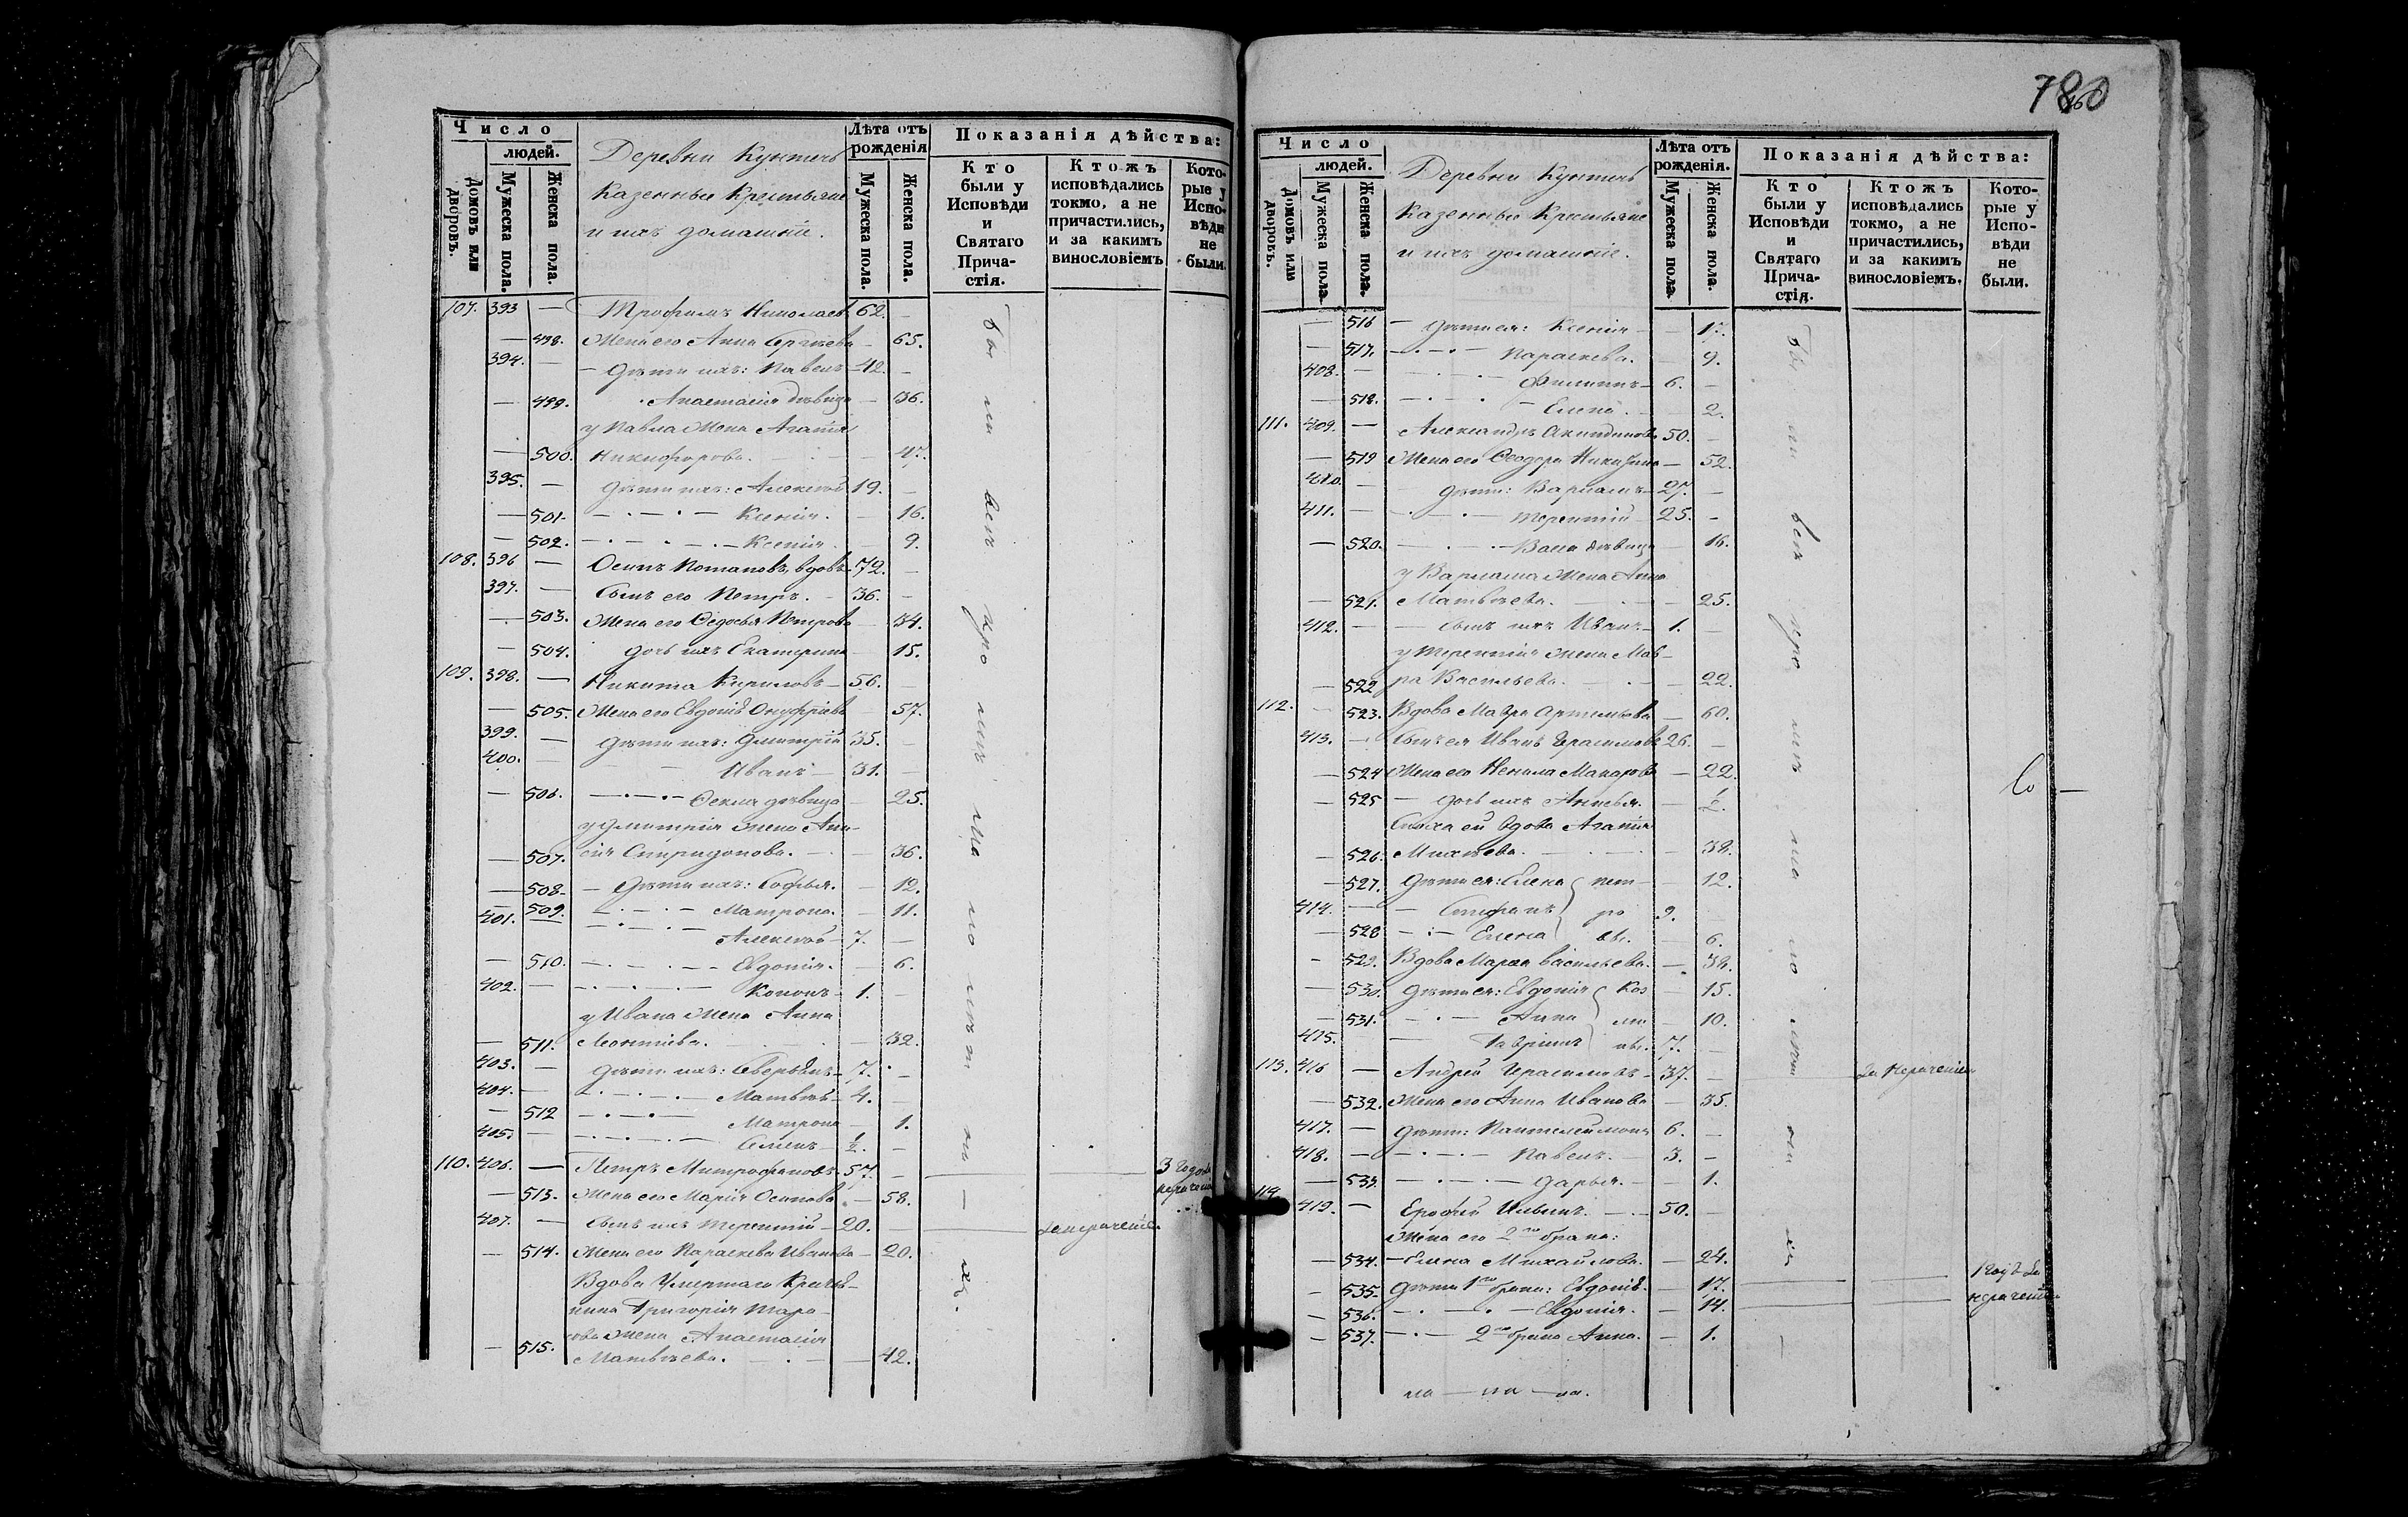 Число
людей.
Домовъ или дворовъ.
Мужеска пола.
Женска пола.
Деревни
Казенные Крестьяне
и ихъ домашніе.
Лѣта отъ рожденія
Мужеска пола.
Женска пола.
Показанія дѣйства:
Кто были у Исповѣди и Святаго Причастія.
Ктожъ исповѣдались токмо, а не причастились, и за какимъ винословіемъ
Которые у Исповѣди не были.
107. 393 — Трофимъ Николаевъ 62. —
— 498. Жена его Анна Сергѣева — 65.
394. — Дѣти ихъ: Павелъ — 42. —
— 499. Анастасія дѣвица — 36.
у Павла жена Агапія
— 500. Никифорова. — 47.
395. — Дѣти ихъ: Алексѣй 19. —
— 501. Ксенія. — 16.
— 502. Ксенія — 9.
108. 396 — Осипъ Потаповъ, вдовъ 72. —
397. — Сынъ его Петръ. 36. —
— 503. Жена его Ѳедосья Петрова — 34.
— 504. Дочь ихъ Екатерина — 15.
109. 398. — Никита Кириловъ — 56. —
— 505. Жена его Евдокія Онуфріева — 57.
399. — Дѣти ихъ: Дмитрій 35. —
400. — Иванъ — 31. —
— 506. Ѳекла дѣвица — 25.
у Дмитрія жена
— 507. Спиридонова. — 36.
— 508. — Дѣти ихъ: Софья. — 12.
— 509. Матрона. — 11.
401. Алексѣй — 7. —
— 510. Евдокія. — 6.
402. — Кононъ — 1. —
у Ивана жена Анна
— 511. Леонтіева. — 32.
403. — Дѣти ихъ: — 7. —
404. — Матвѣй — 4. —
— 512 Матрона — 1.
405. — Семенъ — ½. —
110. 406. — Петръ Митрофановъ 57. — 3 года
— 513. Жена его Марія Осипова — 58.
407. — Сынъ ихъ Терентій — 20. —
— 514. Жена его Параскева Иванова — 20.
Вдова Умершаго Крестья-
нина Григорія Тара-
сова жена Анастасія
— 515. Матвѣева. — 42.
780
Число
людей.
Домовъ или дворовъ.
Мужеска пола
Женска пола.
Деревни
Казенные Крестьяне
и ихъ домашніе.
Лѣта отъ рожденія.
Мужеска пола
Женска пола.
Показанія дѣйства:
Кто были у Исповѣди и Святаго Причастія.
Ктожъ исповѣдались токмо, а не причастились, и за какимъ винословіемъ.
Которые у Исповѣди не были.
— 516 — Дѣти ея: Ксенія — 17.
— 517. Параскева. — 9.
408. — Филиппъ — 6. —
— 518. Елена. — 2.
111. 409. — Александръ Акиндиновъ 50. —
— 519 Жена его Ѳеодора Никитина — 52.
410. — Дѣти: Варламъ — 27. —
411. — Терентій 25. —
— 520. Васса дѣвица — 16.
у Варлама жена Анна
— 521. Матвѣева. — 25.
412. — Сынъ ихъ Иванъ — 1. —
у Терентія жена Мав-
— 522 ра Васильева. — 22.
112. — 523. Вдова Мавра Артемьева — 60.
413. — Сынъ ея Иванъ Герасимовъ 26. —
— 524 Жена его Ненила Макарова — 22.
— 525 — дочь ихъ — ½.
Сноха ей вдова Агапія
— 526. Михѣева. — 38.
— 527. Дѣти ея: Елена — 12.
414. — Стефанъ 9. —
— 528 Елена — 6.
— 529. Вдова Марѳа Васильева. — 38.
— 530. Дѣти ея: Евдокія — 15.
— 531. Анна — 10.
415. — Гавріилъ 7. —
113. 416 — Андрей Герасимовъ — 37. — За нераченіемъ
— 532. Жена его Анна Иванова — 35.
417. — Дѣти: Пантелеймонъ 6. —
418. — Павелъ. — 3. —
— 533. Дарья. — 1.
114. 419. — Ерофей Ильинъ. — 50. —
Жена его 2го брака:
— 534. — Елена Михайлова. — 24.
— 535. Дѣти 1го брака: Евдокія. — 17.
— 536. Евдокія. — 14.
— 537. 2го брака Анна. — 1.